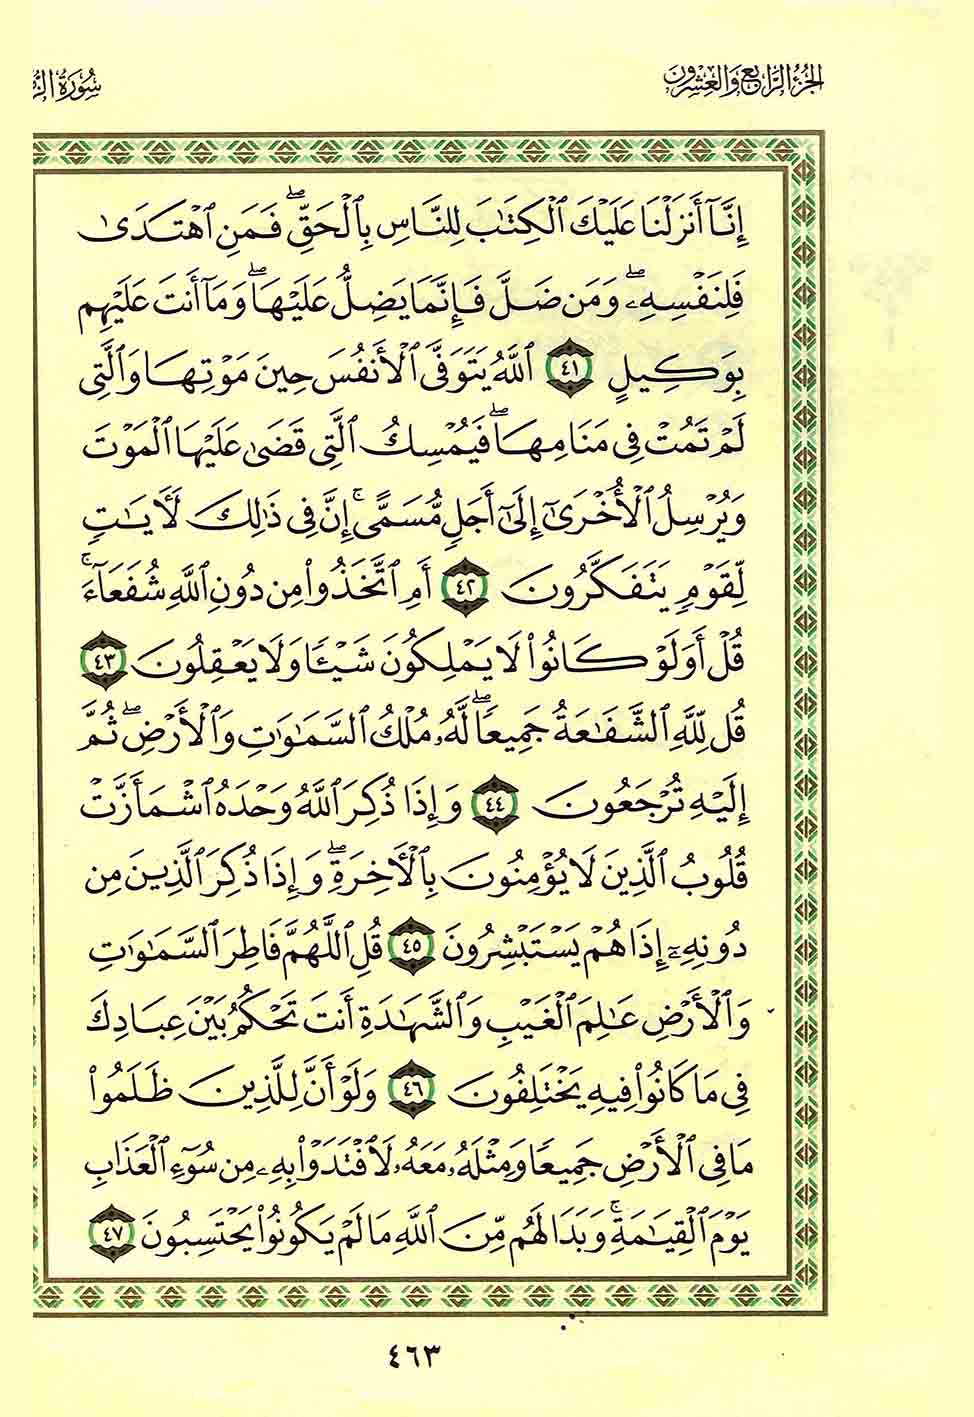 الجزء الرابع والعشرون
سورة
إِنَّآ أَنزَلْنَا عَلَيْكَ ٱلْكِتَٰبَ لِلنَّاسِ بِٱلْحَقِّ ۖ فَمَنِ ٱهْتَدَىٰ
فَلِنَفْسِهِۦ ۖ وَمَن ضَلَّ فَإِنَّمَا يَضِلُّ عَلَيْهَا ۖ وَمَآ أَنتَ عَلَيْهِم
بِوَكِيلٍ ٤١ ٱللَّهُ يَتَوَفَّى ٱلْأَنفُسَ حِينَ مَوْتِهَا وَٱلَّتِى
لَمْ تَمُتْ فِى مَنَامِهَا ۖ فَيُمْسِكُ ٱلَّتِى قَضَىٰ عَلَيْهَا ٱلْمَوْتَ
وَيُرْسِلُ ٱلْأُخْرَىٰٓ إِلَىٰٓ أَجَلٍ مُّسَمًّى ۚ إِنَّ فِى ذَٰلِكَ لَءَايَٰتٍ
لِّقَوْمٍ يَتَفَكَّرُونَ ٤٢ أَمِ ٱتَّخَذُوا۟ مِن دُونِ ٱللَّهِ شُفَعَآءَ ۚ
قُلْ أَوَلَوْ كَانُوا۟ لَا يَمْلِكُونَ شَيْـًٔا وَلَا يَعْقِلُونَ ٤٣
قُل لِّلَّهِ ٱلشَّفَٰعَةُ جَمِيعًا ۖ لَّهُۥ مُلْكُ ٱلسَّمَٰوَٰتِ وَٱلْأَرْضِ ۖ ثُمَّ
إِلَيْهِ تُرْجَعُونَ ٤٤ وَإِذَا ذُكِرَ ٱللَّهُ وَحْدَهُ ٱشْمَأَزَّتْ
قُلُوبُ ٱلَّذِينَ لَا يُؤْمِنُونَ بِٱلْءَاخِرَةِ ۖ وَإِذَا ذُكِرَ ٱلَّذِينَ مِن
دُونِهِۦٓ إِذَا هُمْ يَسْتَبْشِرُونَ ٤٥ قُلِ ٱللَّهُمَّ فَاطِرَ ٱلسَّمَٰوَٰتِ
وَٱلْأَرْضِ عَٰلِمَ ٱلْغَيْبِ وَٱلشَّهَٰدَةِ أَنتَ تَحْكُمُ بَيْنَ عِبَادِكَ
فِى مَا كَانُوا۟ فِيهِ يَخْتَلِفُونَ ٤٦ وَلَوْ أَنَّ لِلَّذِينَ ظَلَمُوا۟
مَا فِى ٱلْأَرْضِ جَمِيعًا وَمِثْلَهُۥ مَعَهُۥ لَٱفْتَدَوْا۟ بِهِۦ مِن سُوٓءِ ٱلْعَذَابِ
يَوْمَ ٱلْقِيَٰمَةِ ۚ وَبَدَا لَهُم مِّنَ ٱللَّهِ مَا لَمْ يَكُونُوا۟ يَحْتَسِبُونَ ٤٧
٤٦٣